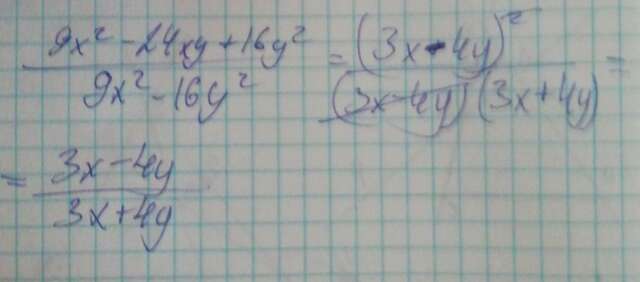 9x² - 24xy + 16y² / 9x² - 16y² = (3x - 4y)² / (3x - 4y)(3x + 4y) =
= 3x - 4y / 3x + 4y